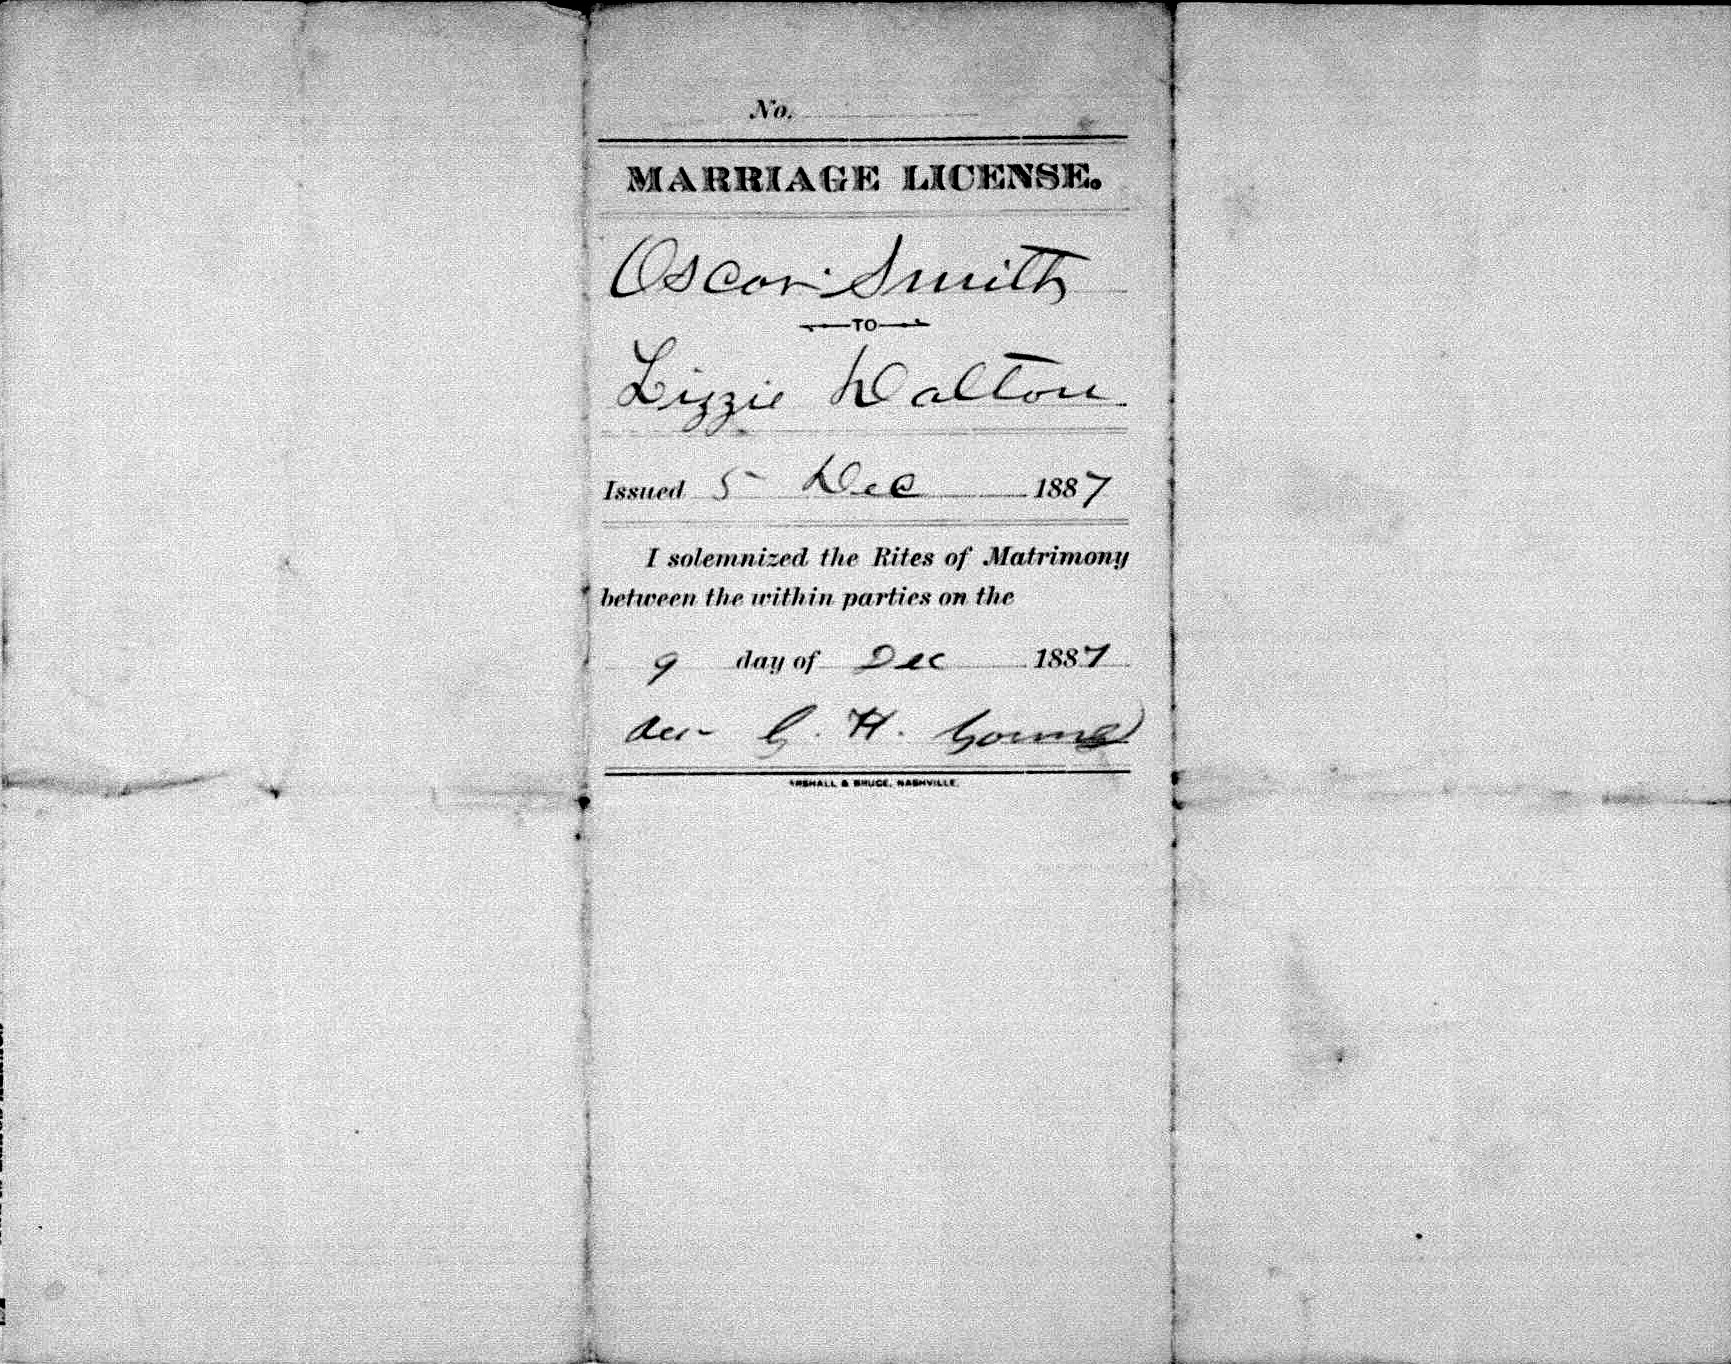 No.
MARRIAGE LICENSE.
Oscar Smith
TO
Lizzie Dalton
Issued 5 Dec 1887
I solemnized the Rites of Matrimony
between the within parties on the
9 day of Dec 1887
G. H.
MARSHALL & BRUCE, NASHVILLE.